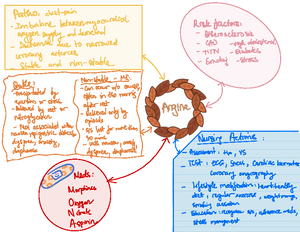 Patho: Chest pain
- Imbalance between myocardial
oxygen supply and demand
- Ischemia due to narrowed
coronary arteries
- Stable and non-stable
Risk factors:
- Atherosclerosis
- CAD - high cholesterol
- HTN - Diabetes
- Smoking - Stress
Stable:
- Precipitated by
exertion or stress
- Relieved by rest or
nitroglycerin
- Not associated with
nausea, epigastric distress,
dyspnea, anxiety,
diaphoresis
Non-stable - MI:
- Can occur w/o cause,
often in the morning
after rest
- Relieved only by
opioids
- Sxs last for more than
30 min
- With nausea,
dyspnea, diaphoresis
Angina
Meds:
Morphine
Oxygen
Nitrate
Aspirin
Nursing Actions:
- Assessment: Hx, VS
- Test: ECG, Stress, Cardiac biomarkers
coronary angiography
- Lifestyle modification: heart-healthy
diet, regular exercise, weight mng,
smoking cessation
- Education: recognize sx, adherence meds,
stress management